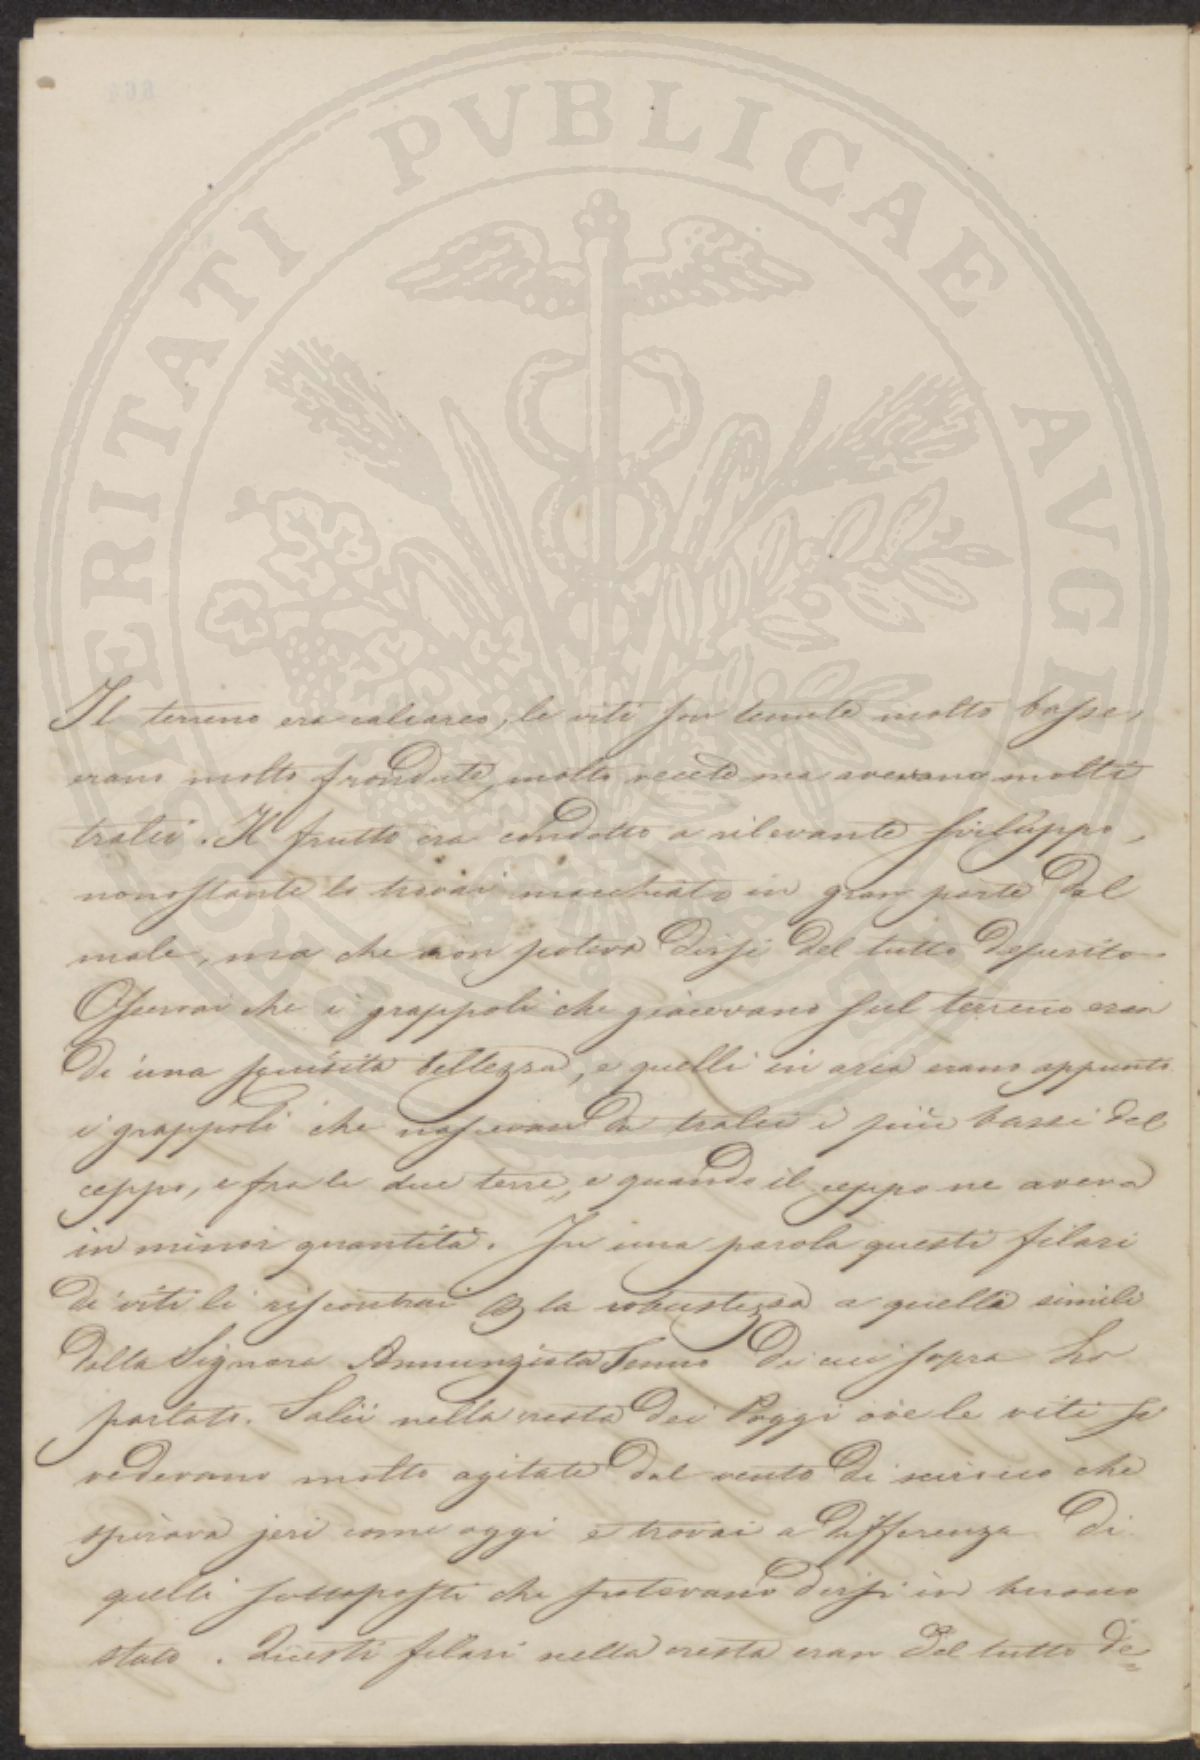 PROSPERITATI PVBLICAE AVGENDAE
Il terreno era calcareo, le viti son tenute molto basse,
erano molto frondute, molto vecete ma avevano molti
tralci. Il frutto era condotto a rilevante sviluppo,
nonostante lo trovai macchiato in gran parte dal
male, ma che non poteva dirsi del tutto deperito.
Osservai che i grappoli che giacevano sul terreno eran
di una squisita bellezza, e quelli in aria erano appunto
i grappoli che nascevan da tralci i più bassi del
ceppo, e fra le due terre, e quando il ceppo ne aveva
in minor quantità. In una parola questi filari
di viti li riscontrai la robustezza a quella simili
della Signora Annunziata di cui sopra ho
parlato. Salii nella cresta dei Poggi ove le viti si
vedevano molto agitate dal vento di scirocco che
spirava jeri come oggi e trovai a differenza di
quelli sottoposti che potevano dirsi in buono
stato. Questi filari nella cresta eran del tutto de=